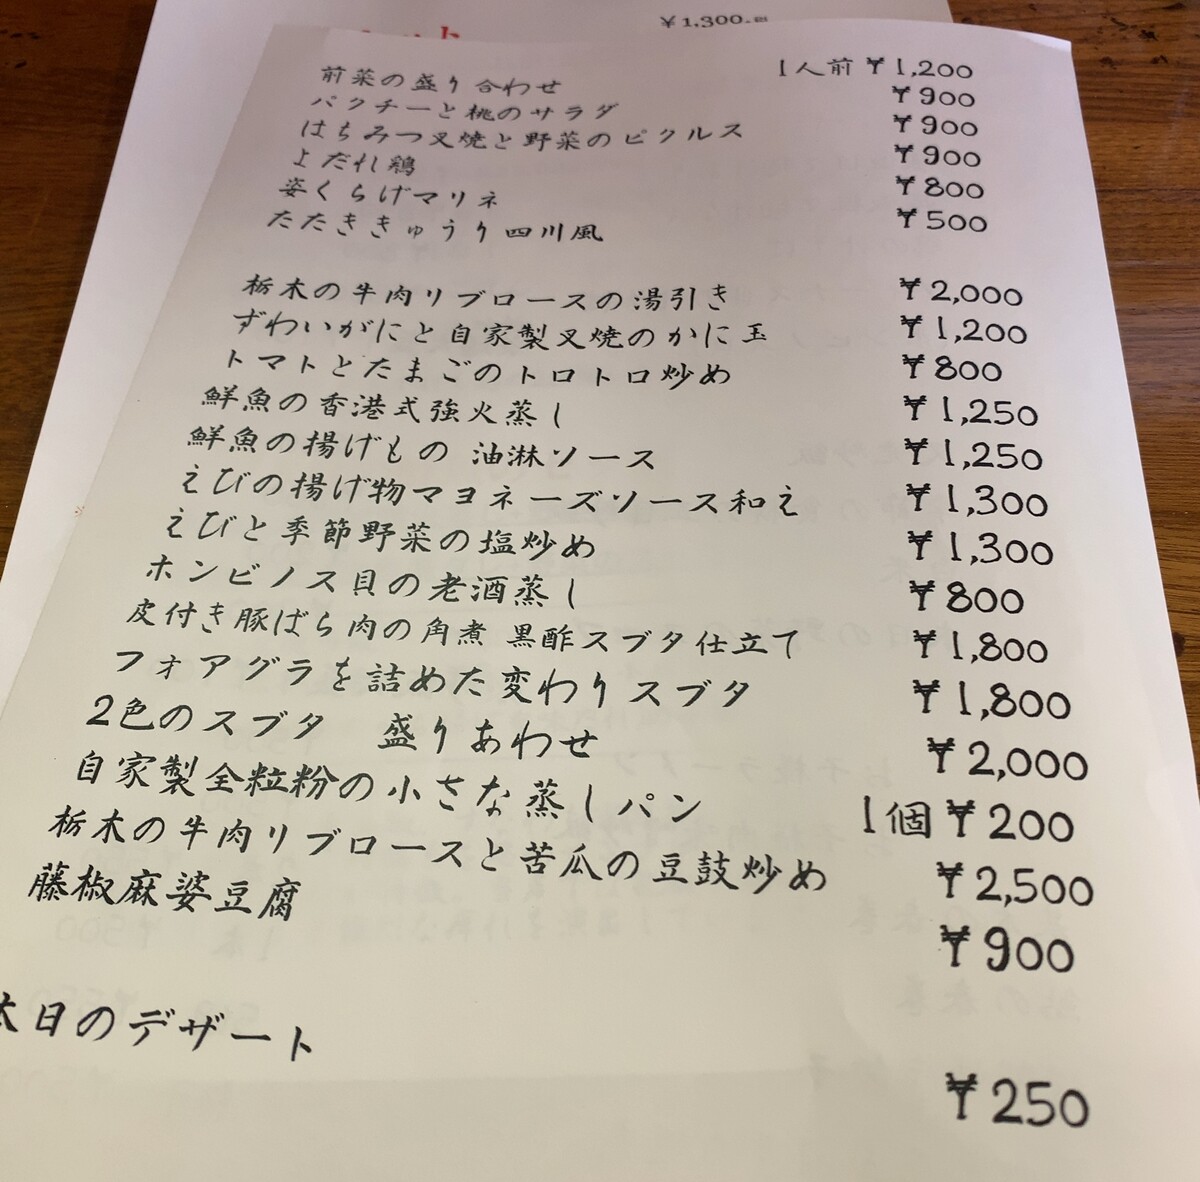 ¥1,300.
前菜の盛り合わせ 1人前 ¥1,200
パクチーと桃のサラダ ¥900
はちみつ叉焼と野菜のピクルス ¥900
よだれ鶏 ¥900
姿くらげマリネ ¥800
たたききゅうり四川風 ¥500
栃木の牛肉リブロースの湯引き ¥2,000
ずわいがにと自家製叉焼のかに玉 ¥1,200
トマトとたまごのトロトロ炒め ¥800
鮮魚の香港式強火蒸し ¥1,250
鮮魚の揚げもの 油淋ソース ¥1,250
えびの揚げ物マヨネーズソース和え ¥1,300
えびと季節野菜の塩炒め ¥1,300
ホンビノス貝の老酒蒸し ¥800
皮付き豚ばら肉の角煮 黒酢スブタ仕立て ¥1,800
フォアグラを詰めた変わりスブタ ¥1,800
2色のスブタ 盛りあわせ ¥2,000
自家製全粒粉の小さな蒸しパン 1個 ¥200
栃木の牛肉リブロースと苦瓜の豆鼓炒め ¥2,500
藤椒麻婆豆腐 ¥900
日のデザート ¥250